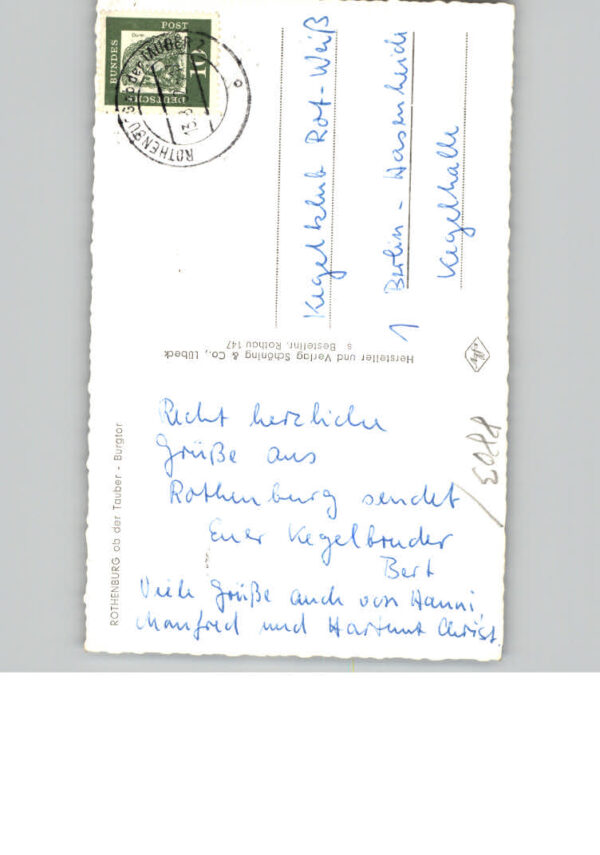 ROTHENBURG ob der Tauber - Burgtor
Recht herzliche
Grüße aus
Rothenburg sendet
Euer Kegelbruder
Bert
Viele Grüße auch von Hanni,
Manfred und Hartmut Christ
Hersteller und Verlag Schöning & Co., Lübeck
s Bestellnr. Rothau 147
DEUTSCHE
BUNDES
POST
10
Kegelklub Rot-Weiß
1 Berlin - Hasenheide
Kegelhalle